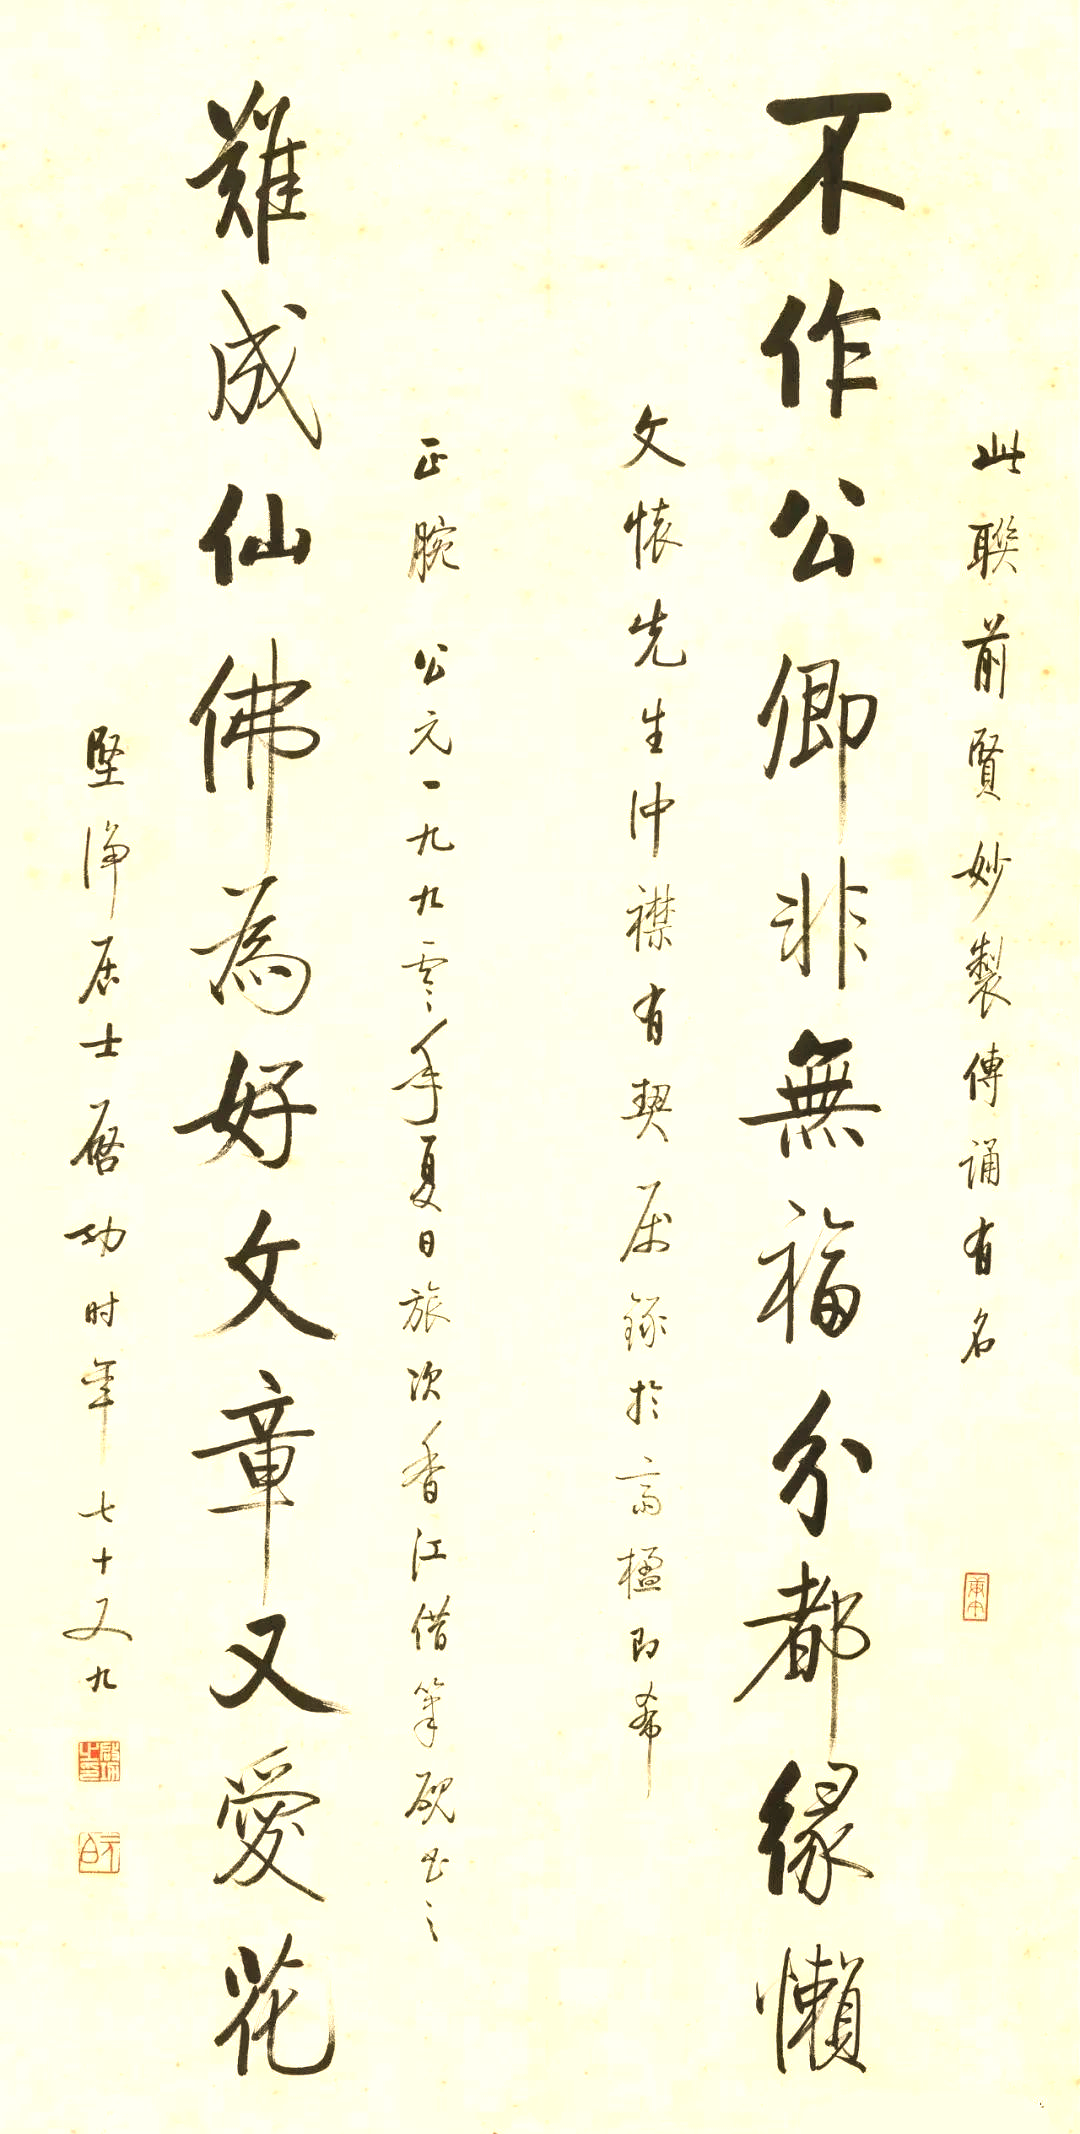 此聯前賢妙製傳誦有名
不作公卿非無福分都緣懶
文懷先生沖襟有契属錄於高楹即希
正腕 公元一九九零年夏日旅次香江借筆硯書之
難成仙佛為好文章又愛花
堅淨居士啓功时年七十又九